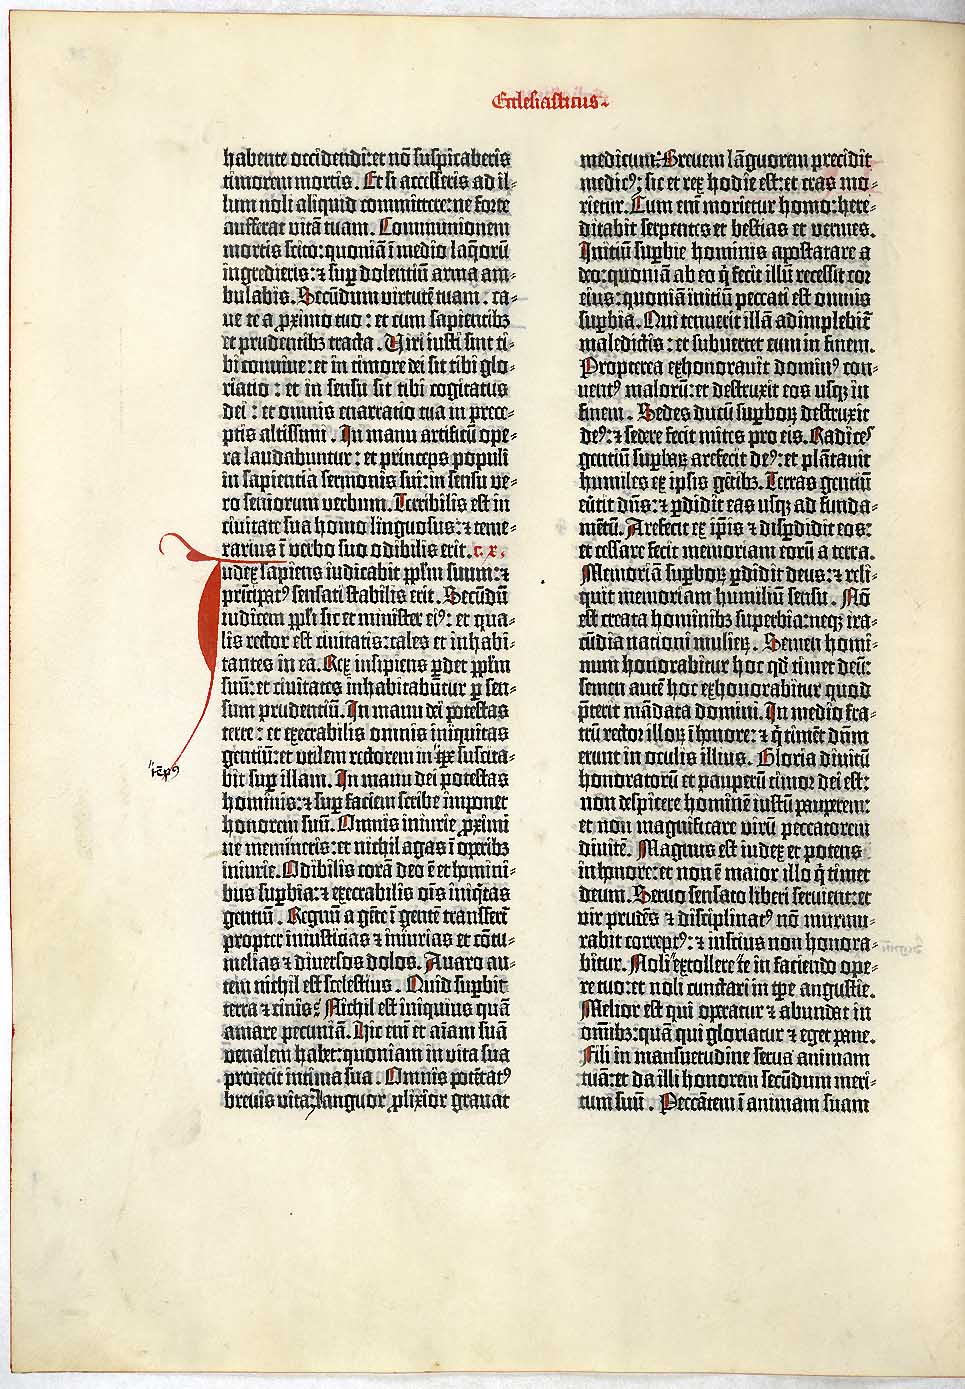 Ecclesiasticus
habente occidendi: et nō suspicaberis
timorem mortis. Et si accesseris ad il⸗
lum noli aliquid committere: ne forte
aufferat vitā tuam. Communionem
mortis scito: quoniā ī medio laq̄orū
ingredieris: ⁊ sup̄ dolentiū arma am⸗
bulabis. Secūdum virtutē tuam . ca⸗
ue te a ꝓximo tuo : et cum sapientibꝫ
et prudentibꝫ tracta . Uiri iusti sint ti⸗
bi conuiue: et in timore dei sit tibi glo⸗
riatio : et in sensu sit tibi cogitatus
dei : et omnis enarratio tua in prece⸗
ptis altissimi . In manu artificū ope⸗
ra laudabuntur: et princeps populi
in sapientia sermonis sui: in sensu ve⸗
ro seniorum verbum. Terribilis est in
ciuitate sua homo linguosus: ⁊ teme⸗
rarius ī verbo suo odibilis erit. c. x.
Iudex sapiens iudicabit pp̄lm suum: ⁊
prīcipatꝰ sensati stabilis erit . Secūdū
iudicem pp̄li sic et ministri eiꝰ: et qua⸗
lis rector est ciuitatis: tales et inhabi⸗
tantes in ea. Rex insipiens p̄det pp̄lm
suū: et ciuitates inhabitabūtur ꝑ sen⸗
sum prudentiū. In manu dei potestas
terre : et execrabilis omnis iniquitas
gentiū: et vtilem rectorem in tp̄e suscita⸗
tēpꝰ
bit sup̄ illam. In manu dei potestas
hominis: ⁊ sup̄ faciem scribe imponet
honorem suū. Omnis iniurie ꝓximi
ne memineris: et nichil agas ī opēibꝫ
iniurie. Odibilis corā deo ē et homini⸗
bus sup̄bia: ⁊ execrabilis oīs iniq̄tas
gentiū . Regnū a gēte ī gentē transfert̄
propter iniustitias ⁊ iniurias et cōtu⸗
melias ⁊ diuersos dolos. Auaro au⸗
tem nichil est scelestius . Quid sup̄bit
terra ⁊ cinis? Nichil est iniquius quā
amare pecuniā. Hic enī et aīam suā
venalem habet: quoniam in vita sua
proiecit intima sua . Omnis potētatꝰ
breuis vita. Languor ꝓlixior grauat
medicum: Breuem lāguorem precidit
medicꝰ: sic et rex hodie est: et cras mo⸗
rietur. Cum enī morietur homo: here⸗
ditabit serpentes et bestias et vermes.
Initiū sup̄bie hominis apostatare a
deo: quoniā ab eo q̄ fecit illū recessit cor
eius: quoniā initiū peccati est omnis
sup̄bia. Qui tenuerit illā adimplebit̄
maledictis : et subuertet eum in finem.
Propterea exhonorauit dominꝰ con⸗
uentꝰ malorū: et destruxit eos usqꝫ in
finem . Sedes ducū sup̄boꝝ destruxit
deꝰ: ⁊ sedere fecit mites pro eis. Radices
gentiū sup̄baꝝ arefecit deꝰ: et plātauit
humiles ex ipsis gētibꝫ. Terras gentiū
eūtit dn̄s: ⁊ p̄didit eas usqꝫ ad funda⸗
mētū. Arefecit ex ip̄is ⁊ disp̄didit eos:
et cessare fecit memoriam eorū a terra.
Memoriā sup̄boꝝ p̄didit deus: ⁊ reli⸗
quit memoriam humiliū sensu . Nō
est creata hominibꝫ superbia: neqꝫ ira⸗
cūdia nationi mulieꝝ . Semen homi⸗
num honorabitur hoc qd̄ timet deū:
semen autē hoc exhonorabitur quod
p̄terit mādata domini. In medio fra⸗
trū rector illoꝝ ī honore: ⁊ q̄ timēt dn̄m
erunt in oculis illius. Gloria diuitū
honoratorū et pauperū timor dei est:
non despicere hominē iustū pauperem:
et non magnificare virū peccatorem
diuitē. Magnus est iudex et potens
in honore: et non ē maior illo q̄ timet
deum. Seruo sensato liberi seruient: et
vir prudēs ⁊ disciplinatꝰ nō murmu⸗
rabit correptꝰ: ⁊ inscius non honora⸗
bitur. Noli extollere te in faciendo ope⸗
re tuo: et noli cunctari in tp̄e angustie.
Melior est qui operatur ⁊ abundat in
omībꝫ: quā qui gloriatur ⁊ eget pane.
Fili in mansuetudine serua animam
tuā: et da illi honorem secūdum meri⸗
tum suū . Peccātem ī animam suam